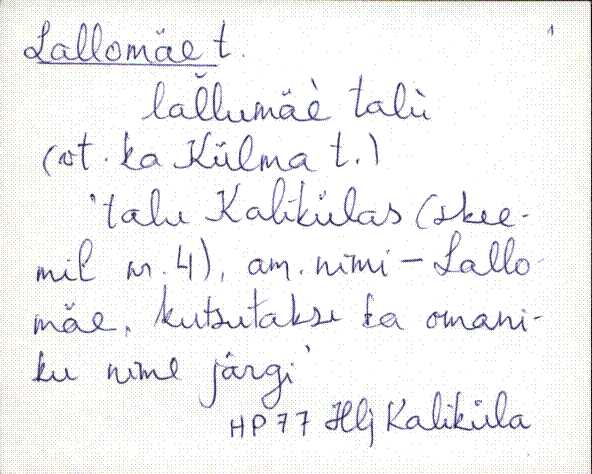 Lallomäe t. 1
lal̆lumäè talù
(vt. ka Külma t.)
'talu Kaliküla​s (skee-
mil nr. 4), am. nimi – Lallo-
mäe, kutsutakse ka omani-
ku nime järgi'
HP 77 Hlj Kaliküla